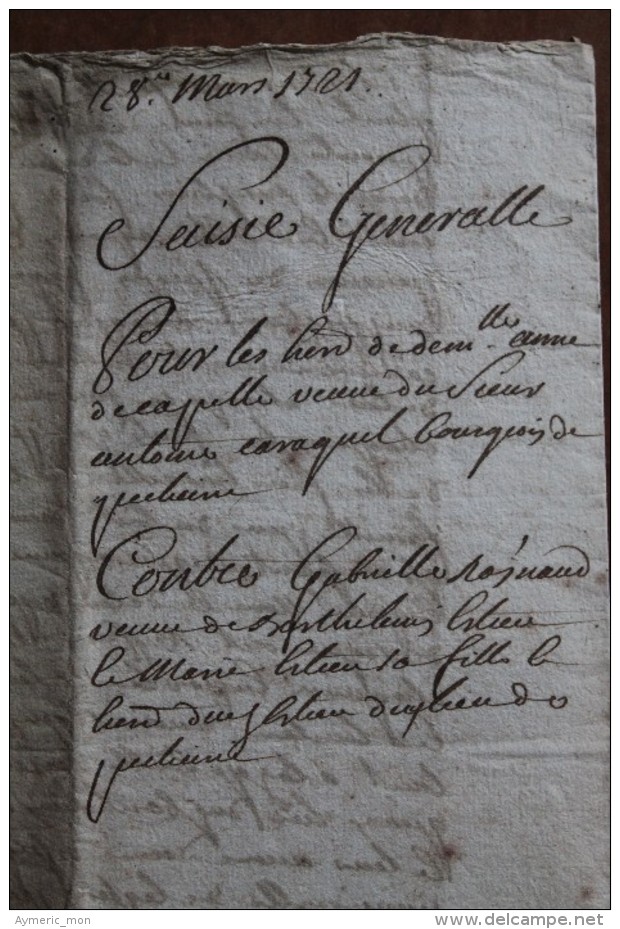 28.e Mars 1721.
Saisie Generalle
Pour les herd de dem.lle anne
de capelle veuve du Sieur
antoine caraquel bourgeois de
puchairic
Contre Gabrielle Raynaud
veuve de Barthelemy
& Marie sa fille &
herd dud du lieu de
puchairic
Aymeric_mon
www.delcampe.net